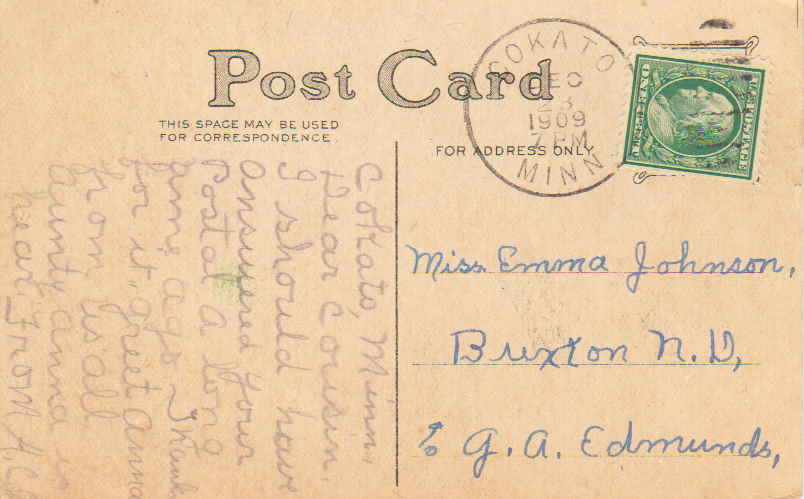 Post Card
THIS SPACE MAY BE USED
FOR CORRESPONDENCE
FOR ADDRESS ONLY
COKATO
DEC
28
1909
7 PM
MINN
Cokato, Minn.
Dear Cousin.
I should have
answered your
Postal a long
time ago Thank
for it, greet anna
aunty anna
from us all
hear, From A. C.
Miss Emma Johnson,
Bruxton N. D,
% G. A. Edmunds,